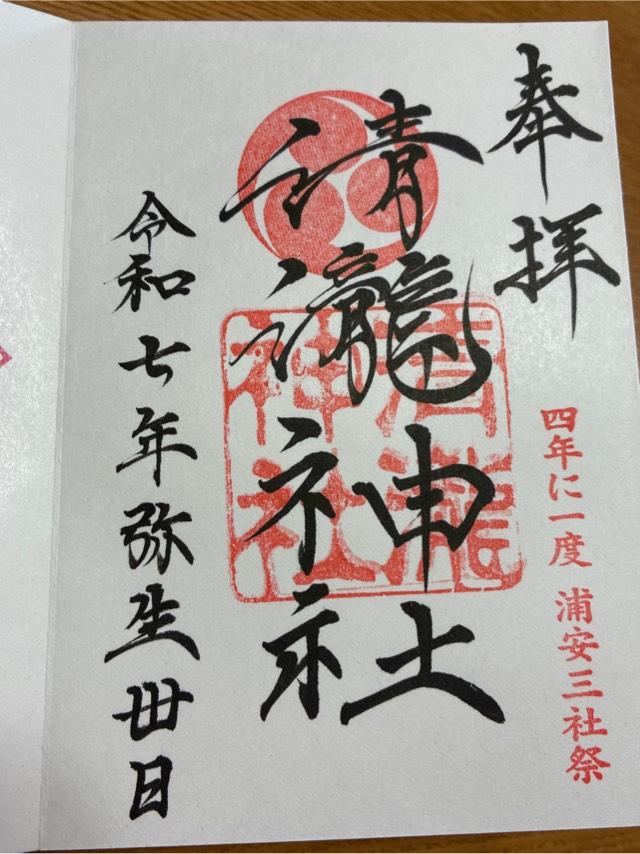 奉拝
四年に一度 浦安三社祭
清瀧神社
清瀧
神社
令和七年弥生丗日